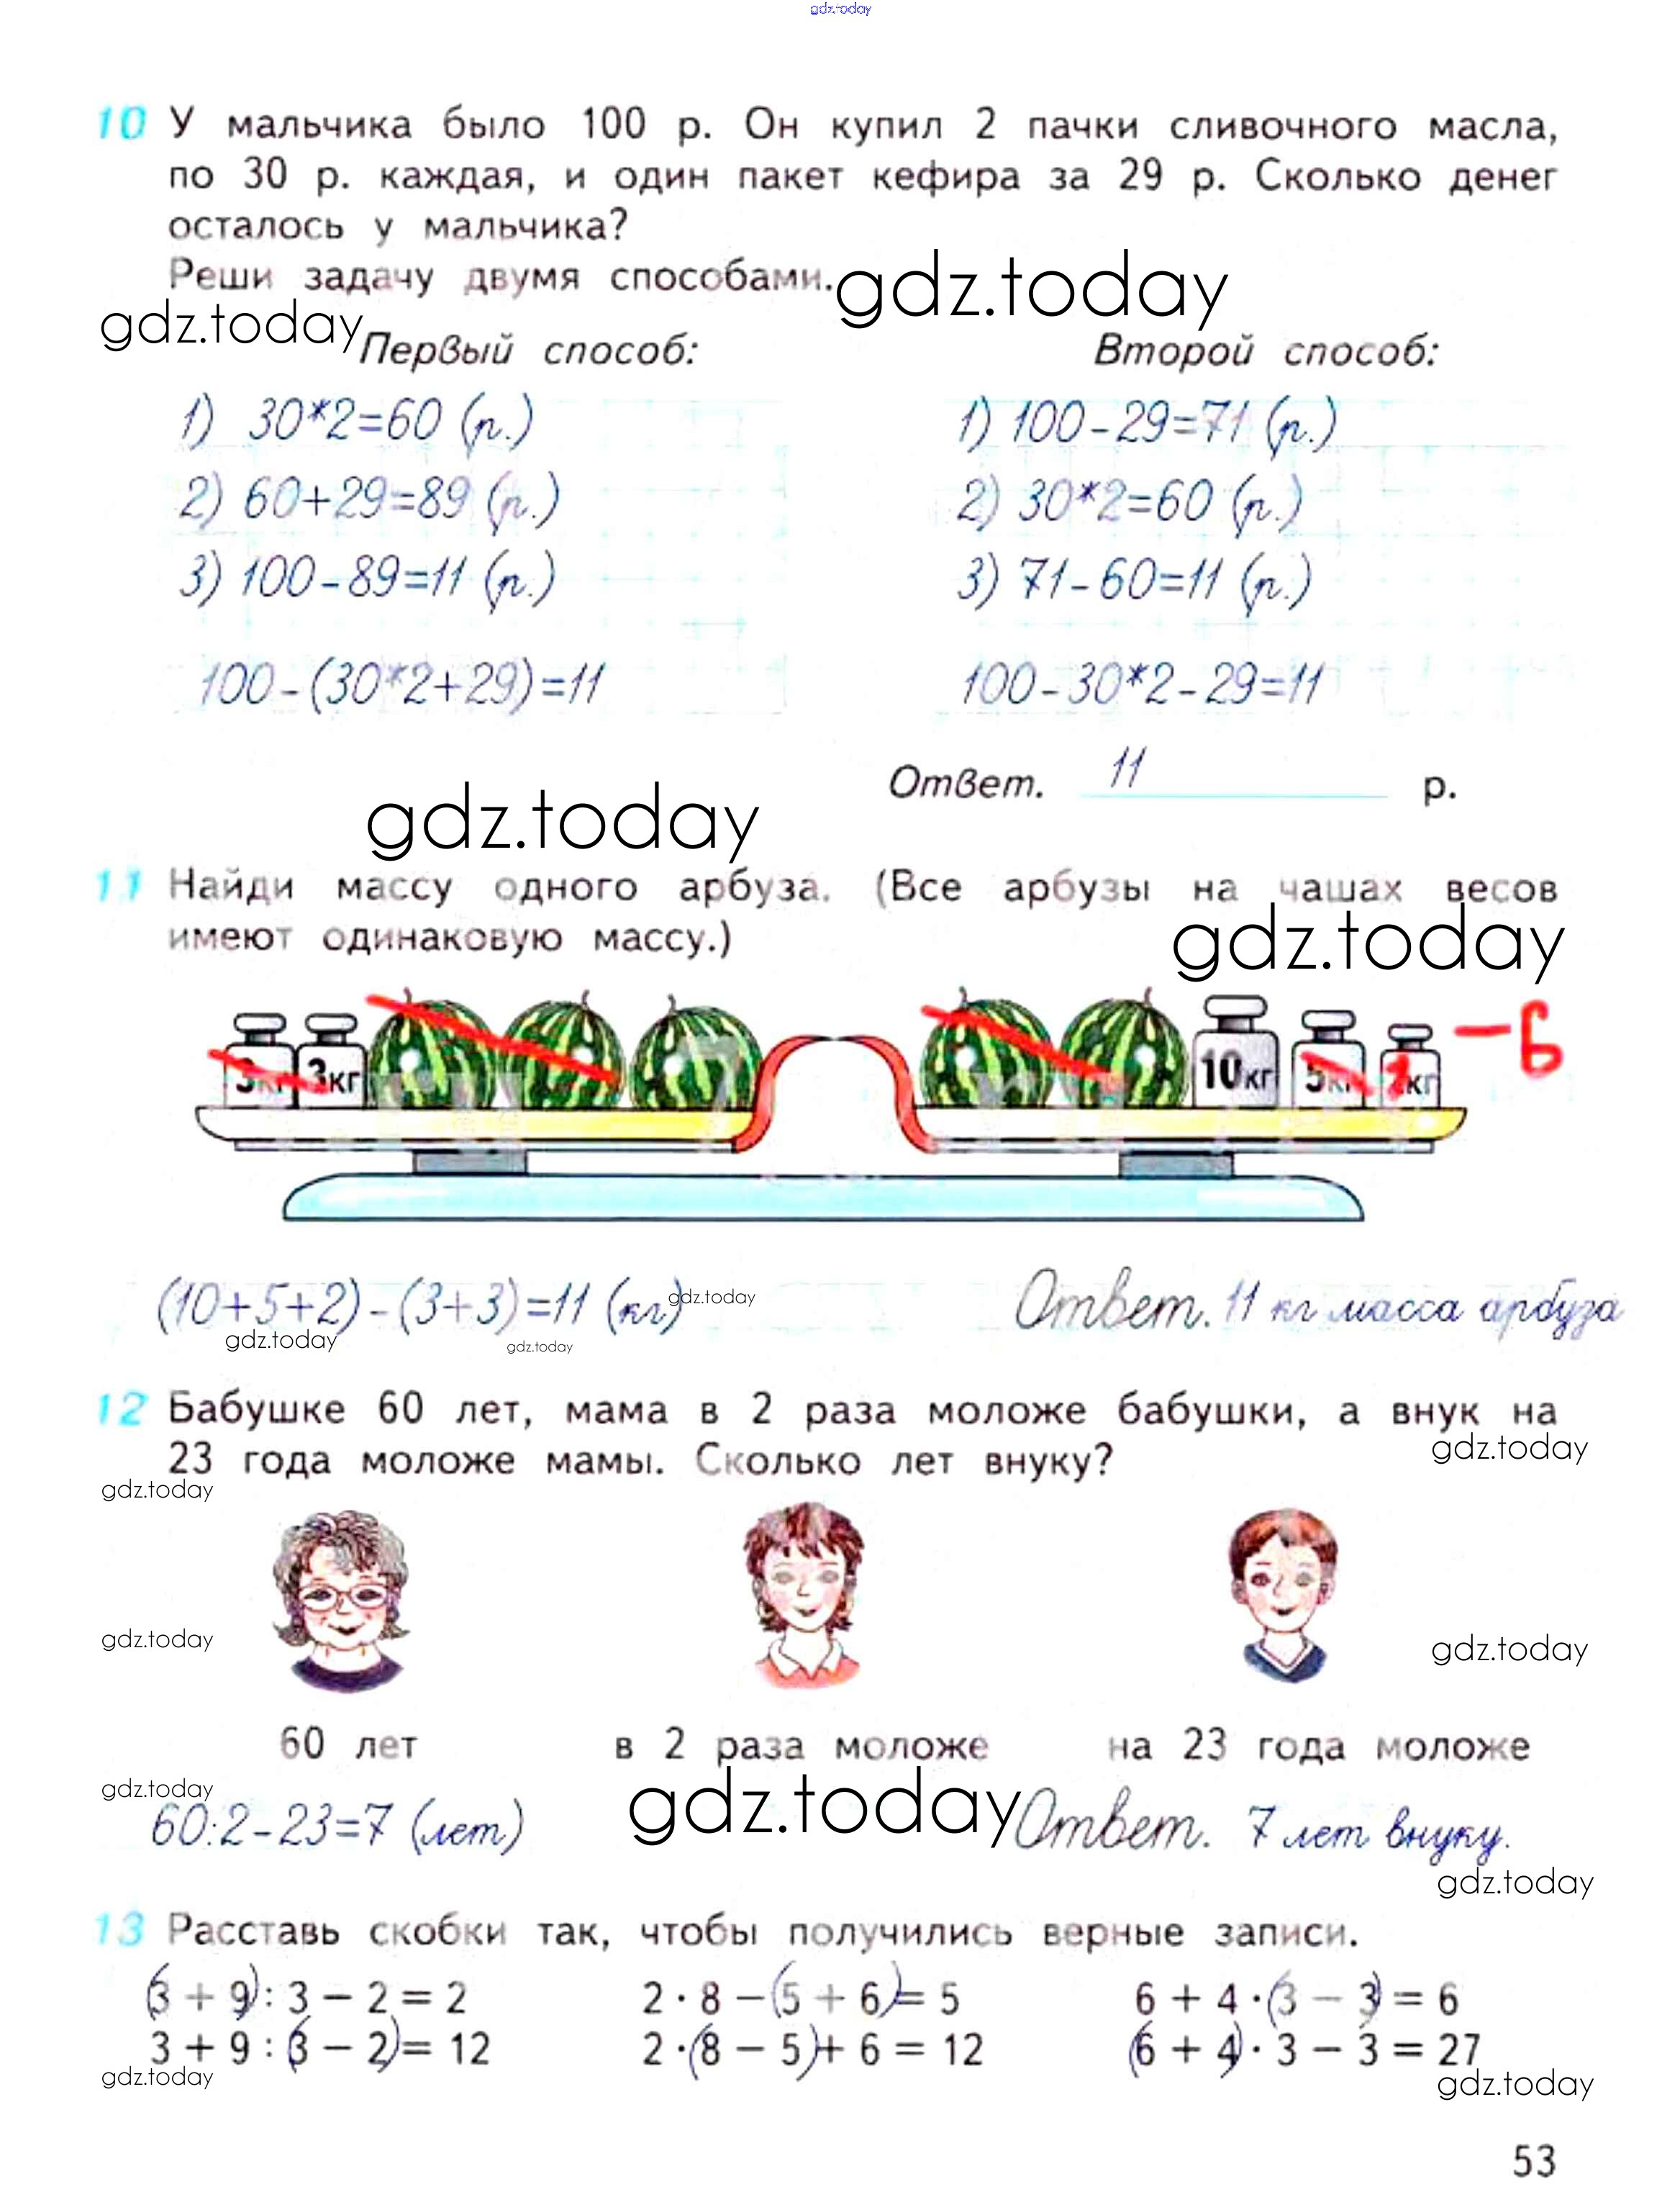 gdz.today
10 У мальчика было 100 р. Он купил 2 пачки сливочного масла,
по 30 р. каждая, и один пакет кефира за 29 р. Сколько денег
осталось у мальчика?
Реши задачу двумя способами. gdz.today
gdz.today
Первый способ: Второй способ:
1) 30*2=60 (р.) 1) 100-29=71 (р.)
2) 60+29=89 (р.) 2) 30*2=60 (р.)
3) 100-89=11 (р.) 3) 71-60=11 (р.)
100-(30*2+29)=11 100-30*2-29=11
Ответ. 11 р.
gdz.today
11 Найди массу одного арбуза. (Все арбузы на чашах весов
имеют одинаковую массу.)
gdz.today
3кг 3кг 10кг 5кг 2кг -6
(10+5+2)-(3+3)=11 (кг) gdz.today Ответ. 11 кг масса арбуза
gdz.today gdz.today
12 Бабушке 60 лет, мама в 2 раза моложе бабушки, а внук на
23 года моложе мамы. Сколько лет внуку?
gdz.today
gdz.today
gdz.today gdz.today
60 лет в 2 раза моложе на 23 года моложе
gdz.today gdz.today
60:2-23=7 (лет) Ответ. 7 лет внуку.
gdz.today
13 Расставь скобки так, чтобы получились верные записи.
(3 + 9) : 3 − 2 = 2 2 · 8 − (5 + 6) = 5 6 + 4 · (3 − 3) = 6
3 + 9 : (3 − 2) = 12 2 · (8 − 5) + 6 = 12 (6 + 4) · 3 − 3 = 27
gdz.today gdz.today
53